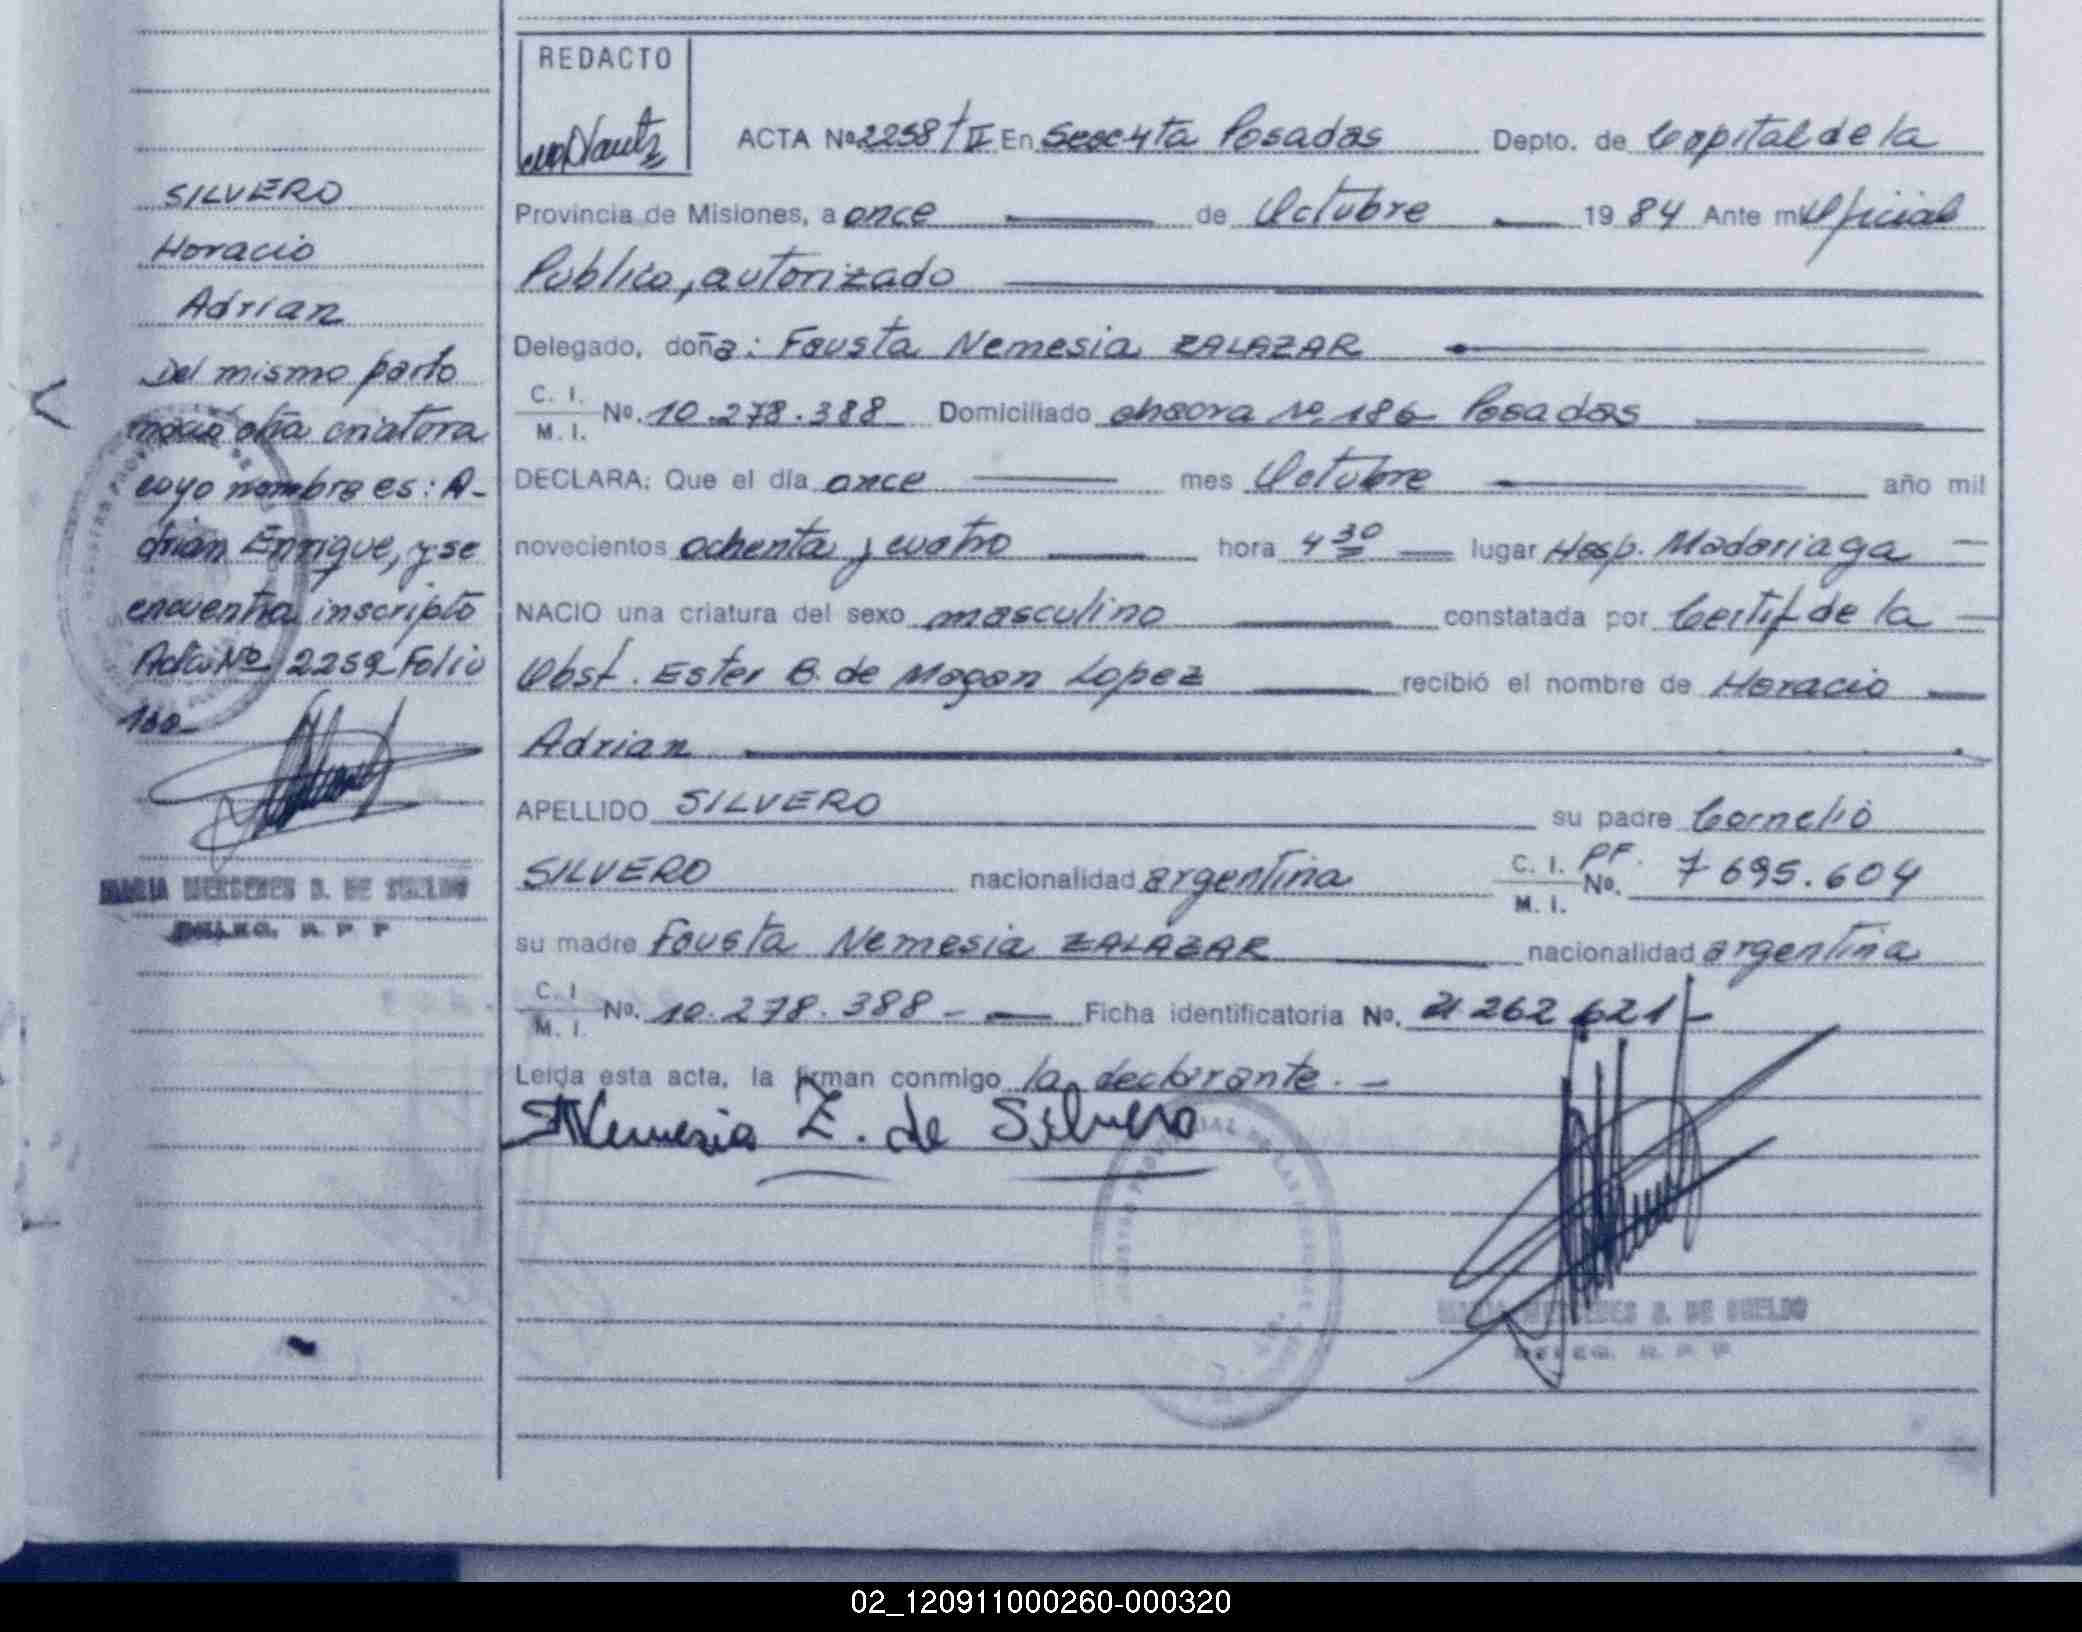 SILVERO
Horacio
Adrian
Del mismo parto
nacio otra criatura
cuyo nombre es: A-
drian Enrique, y se
encuentra inscripto
Acta Nº 2259 Folio
160-
MARIA MERCEDES B. DE SUELDO
DELEG. R. P. P
REDACTO
ACTA Nº 2258/II En Secc 4ta Posadas Depto. de Capital de la
Provincia de Misiones, a once de Octubre 1984 Ante mi Oficial
Publico, autorizado
Delegado, doña: Fausta Nemesia ZALAZAR
C. I.
M. I. Nº. 10.278.388 Domiciliado chacra Nº. 186 Posadas
DECLARA: Que el día once mes Octubre año mil
novecientos ochenta y cuatro hora 4 30 lugar Hosp. Madariaga
NACIO una criatura del sexo masculino constatada por Certif de la
Obst. Ester B. de Magan Lopez recibió el nombre de Horacio
Adrian
APELLIDO SILVERO su padre Cornelio
SILVERO nacionalidad argentina C. I. PF.
M. I. Nº. 7 695.604
su madre Fausta Nemesia ZALAZAR nacionalidad argentina
C. I
M. I. Nº. 10.278.388 - Ficha identificatoria Nº. 21 262 621 -
Leída esta acta, la firman conmigo la declarante. -
Nemesia Z. de Silvero
MARIA MERCEDES B. DE SUELDO
DELEG. R. P. P
02_120911000260-000320